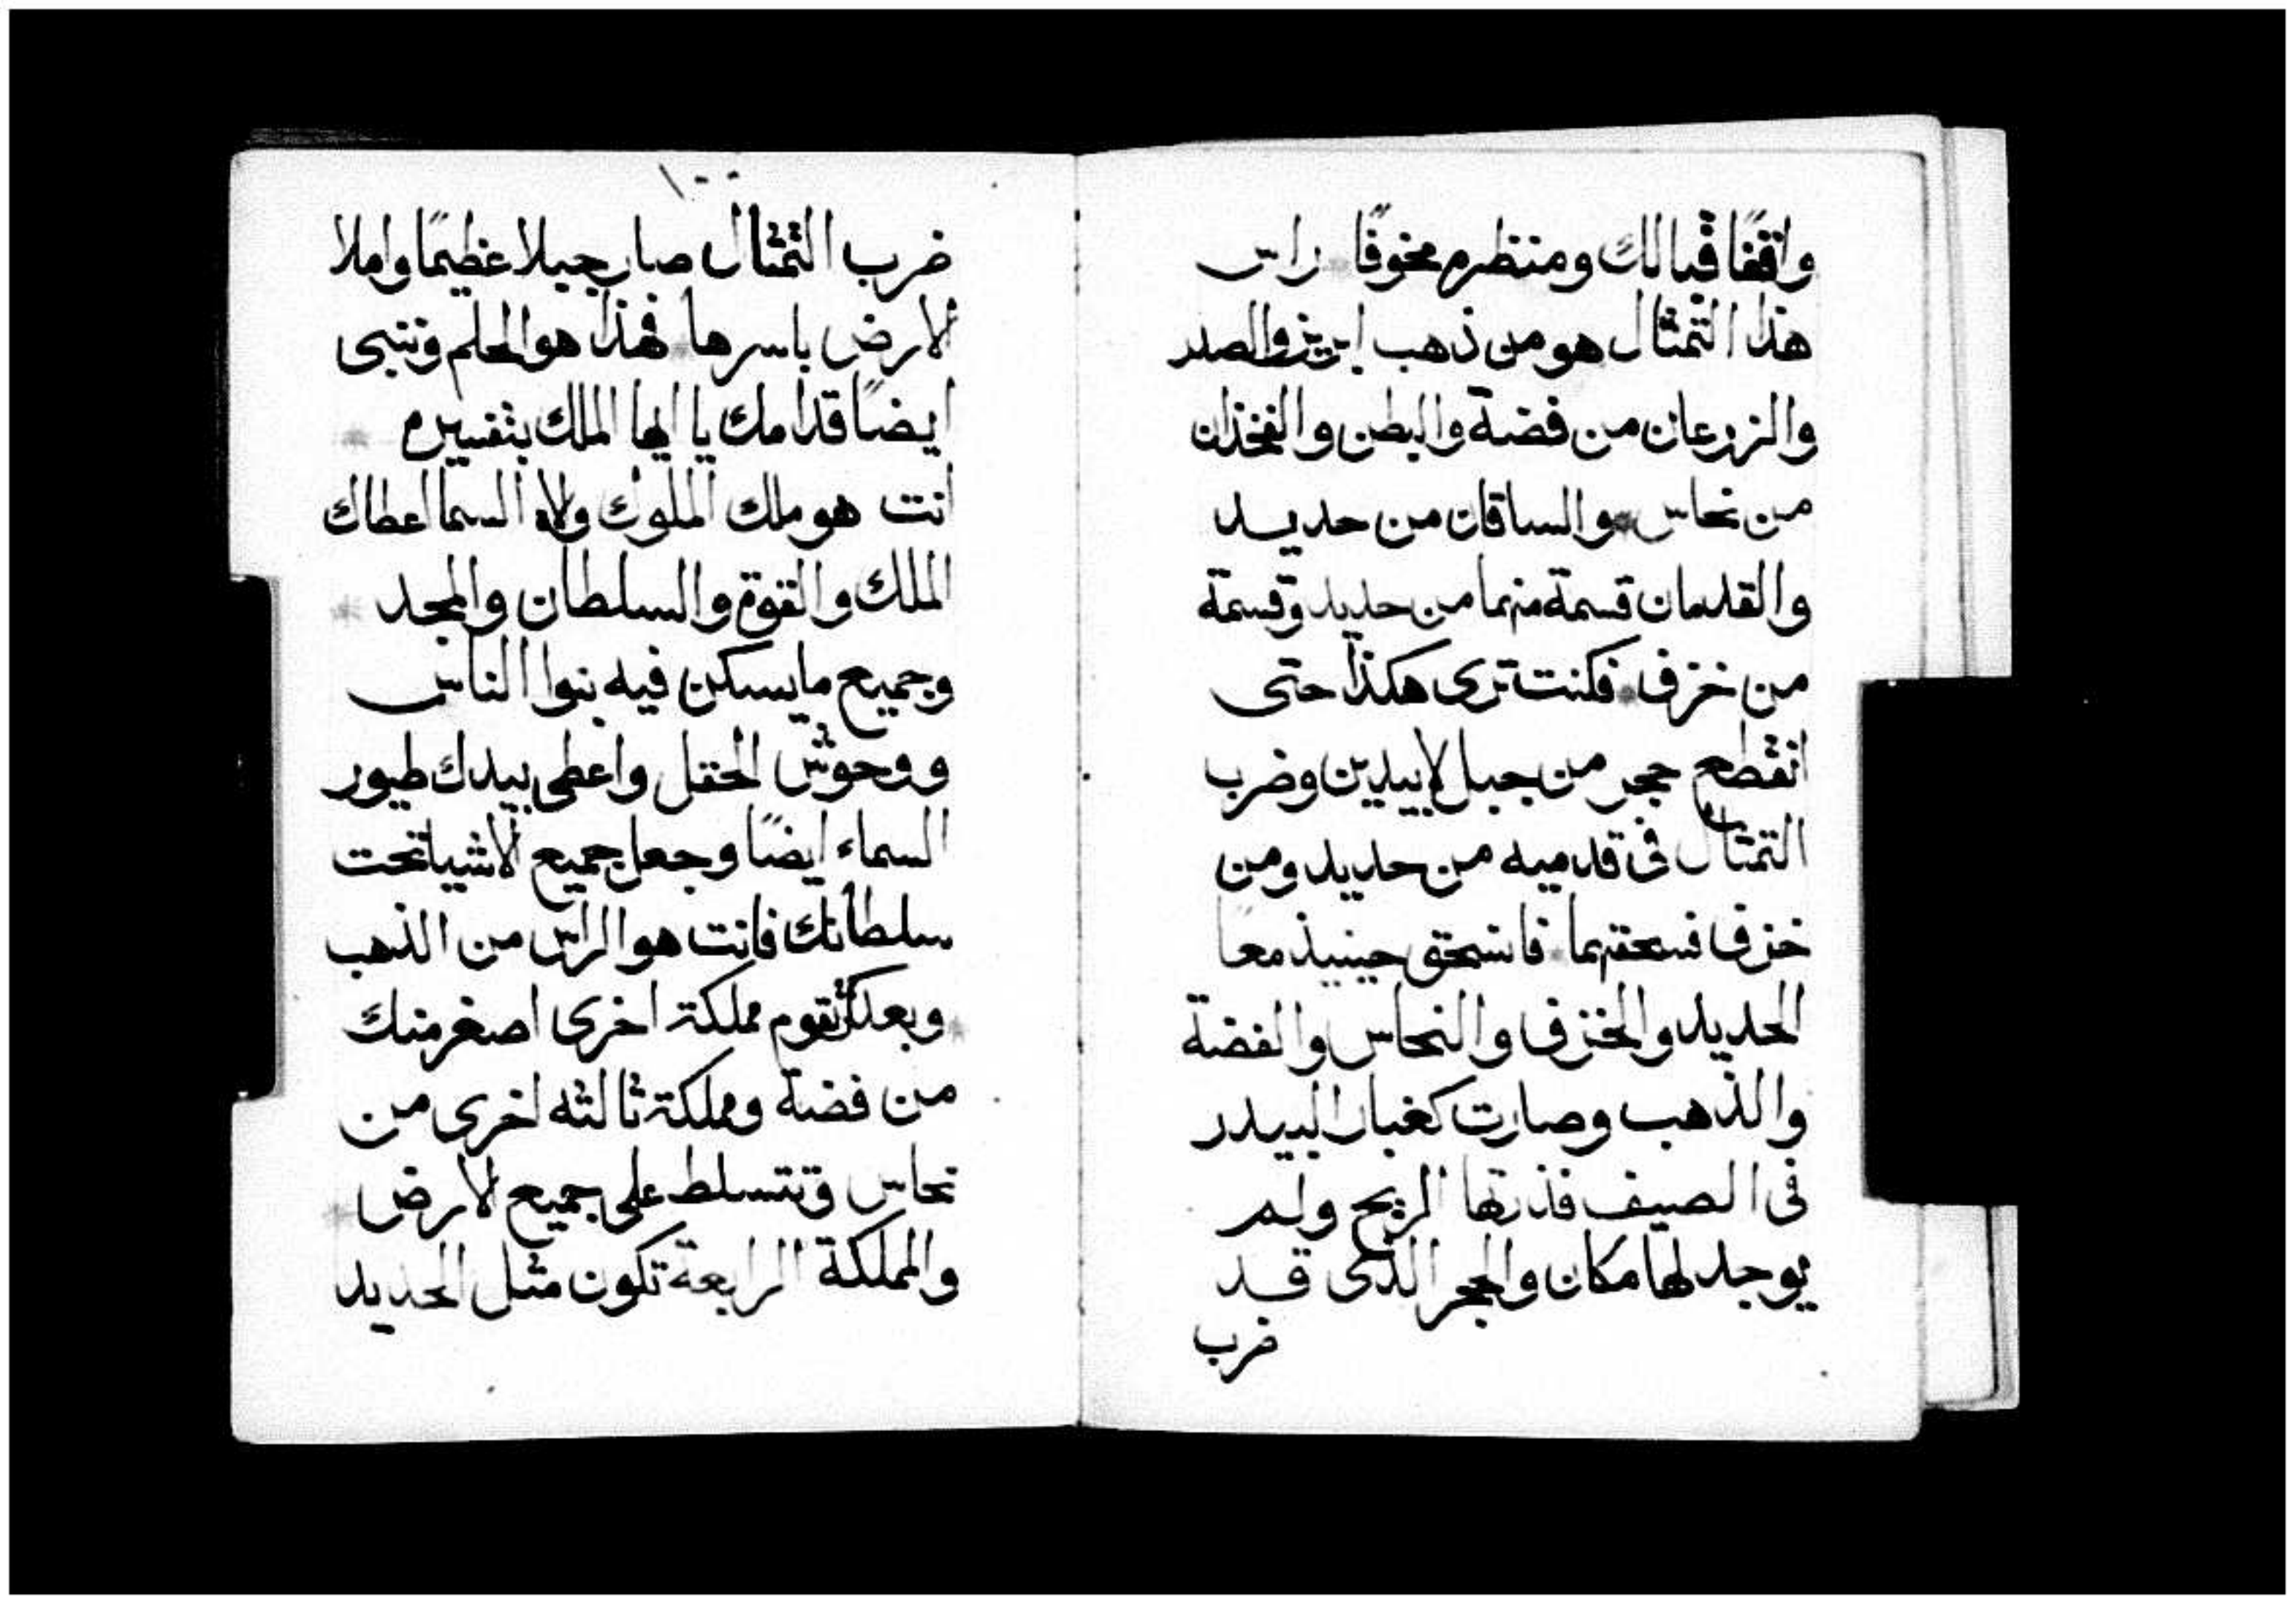 واقفًا قبالك ومنظره مخوفًا راس
هذا التمثال هو من ذهب ابريز والصدر
والزرعان من فضة والبطن والفخذان
من نحاس والساقان من حديد
والقدمان قسمة منهما من حديد وقسمة
من خزف فكنت ترى هكذا حتى
انقطع حجر من جبل لابيدين وضرب
التمثال فى قدميه من حديد ومن
خزف فسحقهما فانسحق حينيذ معا
الحديد والخزف والنحاس والفضة
والذهب وصارت كغبار البيدر
فى الصيف فذرتها الريح ولم
يوجد لها مكان والحجر الذى قد
ضرب
١٠٠
ضرب التمثال صار جبيلا عظيمًا واملا
الارض باسرها فهذا هو الحلم وننبى
ايضًا قدامك يا ايها الملك بتفسيره
انت هو ملك الملوك والاه السما اعطاك
الملك والقوة والسلطان والمجد
وجميع ما يسكن فيه بنوا الناس
ووحوش الحقل واعطى بيدك طيور
السماء ايضًا وجعل جميع الاشيا تحت
سلطانك فانت هو الراس من الذهب
وبعدك تقوم مملكة اخرى اصغر منك
من فضة ومملكة ثالثه اخرى من
نحاس وتتسلط على جميع الارض
والمملكة الرابعة تكون مثل الحديد